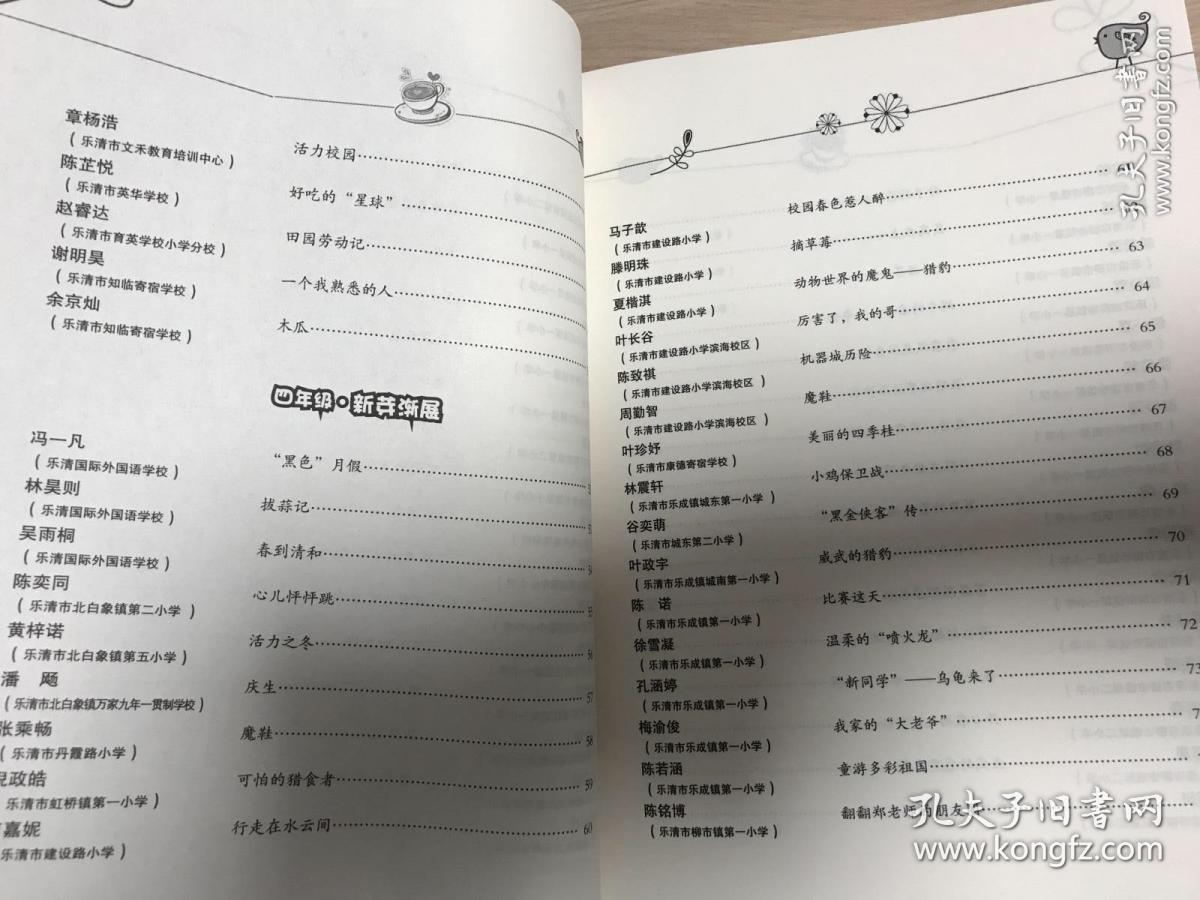 章杨浩
（乐清市文禾教育培训中心） 活力校园
陈芷悦
（乐清市英华学校） 好吃的“星球”
赵睿达
（乐清市育英学校小学分校） 田园劳动记
谢明昊
（乐清市知临寄宿学校） 一个我熟悉的人
余京灿
（乐清市知临寄宿学校） 木瓜
四年级·新芽渐展
冯一凡
（乐清国际外国语学校） “黑色”月假
林昊则
（乐清国际外国语学校） 拔蒜记
吴雨桐
（乐清国际外国语学校） 春到清和
陈奕同
（乐清市北白象镇第二小学） 心儿怦怦跳
黄梓诺
（乐清市北白象镇第五小学） 活力之冬 56
潘 飏
（乐清市北白象镇万家九年一贯制学校） 庆生 57
张乘畅
（乐清市丹霞路小学） 魔鞋 58
政皓
乐清市虹桥镇第一小学） 可怕的猎食者 59
嘉妮
乐清市建设路小学） 行走在水云间 60
马子歆
（乐清市建设路小学） 校园春色惹人醉
滕明珠
（乐清市建设路小学） 摘草莓
夏楷淇
（乐清市建设路小学） 动物世界的魔鬼——猎豹 63
叶长谷
（乐清市建设路小学滨海校区） 厉害了，我的哥 64
陈致祺
（乐清市建设路小学滨海校区） 机器城历险 65
周勤智
（乐清市建设路小学滨海校区） 魔鞋 66
叶珍妤
（乐清市康德寄宿学校） 美丽的四季桂 67
林震轩
（乐清市乐成镇城东第一小学） 小鸡保卫战 68
谷奕萌
（乐清市城东第二小学） “黑金侠客”传 69
叶政宇
（乐清市乐成镇城南第一小学） 威武的猎豹 70
陈 诺
（乐清市乐成镇第一小学） 比赛这天 71
徐雪凝
（乐清市乐成镇第一小学） 温柔的“喷火龙” 72
孔涵婷
（乐清市乐成镇第一小学） “新同学”——乌龟来了 73
梅渝俊
（乐清市乐成镇第一小学） 我家的“大老爷”
陈若涵
（乐清市乐成镇第一小学） 童游多彩祖国
陈铭博
（乐清市柳市镇第一小学） 翻翻郑老师的朋友
孔夫子旧书网
www.kongfz.com
孔夫子旧书网
www.kongfz.com